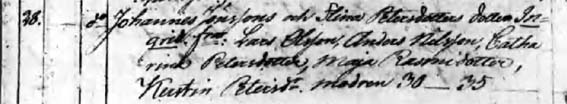 38. do Johannes Jonssons och Stina Petersdotters dotter In-
grid, fra: Lars Olsson, Anders Nilsson, Catha
rina Petersdotter, Maja Rasmusdotter,
Kerstin Petersdr. modren 30 — 35